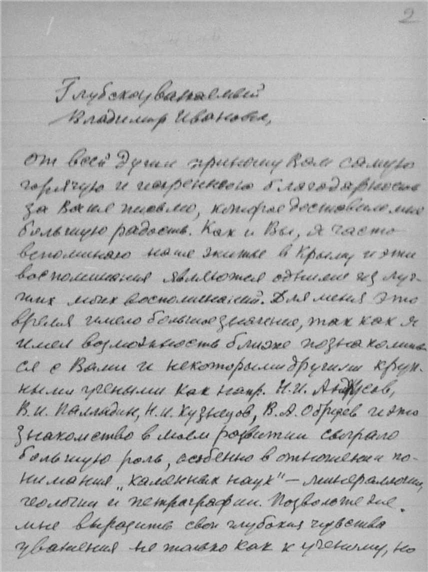 2
Глубокоуважаемый
Владимир Иванович,
от всей души приношу Вам самую
горячую и искреннюю благодарность
за Ваше письмо, которое доставило мне
большую радость. Как и Вы, я часто
вспоминаю наше житье в Крыму и эти
воспоминания являются одними из луч-
ших моих воспоминаний. Для меня это
время имело большое значение, так как я
имел возможность ближе познакомить-
ся с Вами и некоторыми другими круп-
ными учеными как напр. Н.И. Андрусов,
В.И. Палладин, Н.И. Кузнецов, В.А. Обручев и это
знакомство в моем развитии сыграло
большую роль, особенно в отношении по-
нимания „каменных наук" – минералогии,
геологии и петрографии. Позвольте же
мне выразить свои глубокие чувства
уважения не только как к ученому, но